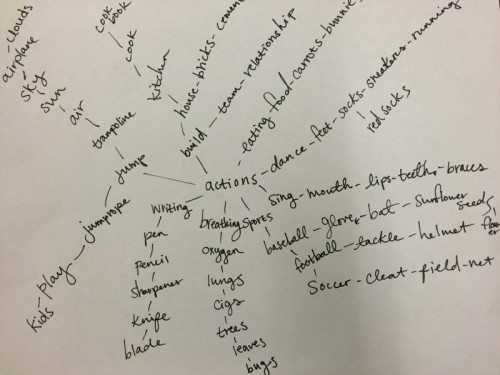 clouds
airplane
sky
sun
air
trampoline
jump
jumprope
play
kids
cook
book
cook
kitchen
house - bricks
build - team - relationship
eating - food - carrots
actions - dance - feet - socks - sneakers - running
red socks
sing - mouth - lips - teeth - braces
writing
pen
pencil
sharpener
knife
blade
breathing
oxygen
lungs
cigs
trees
leaves
bugs
sports
baseball - glove - bat - sunflower
seeds
flower
football - tackle - helmet
soccer - cleat - field - net